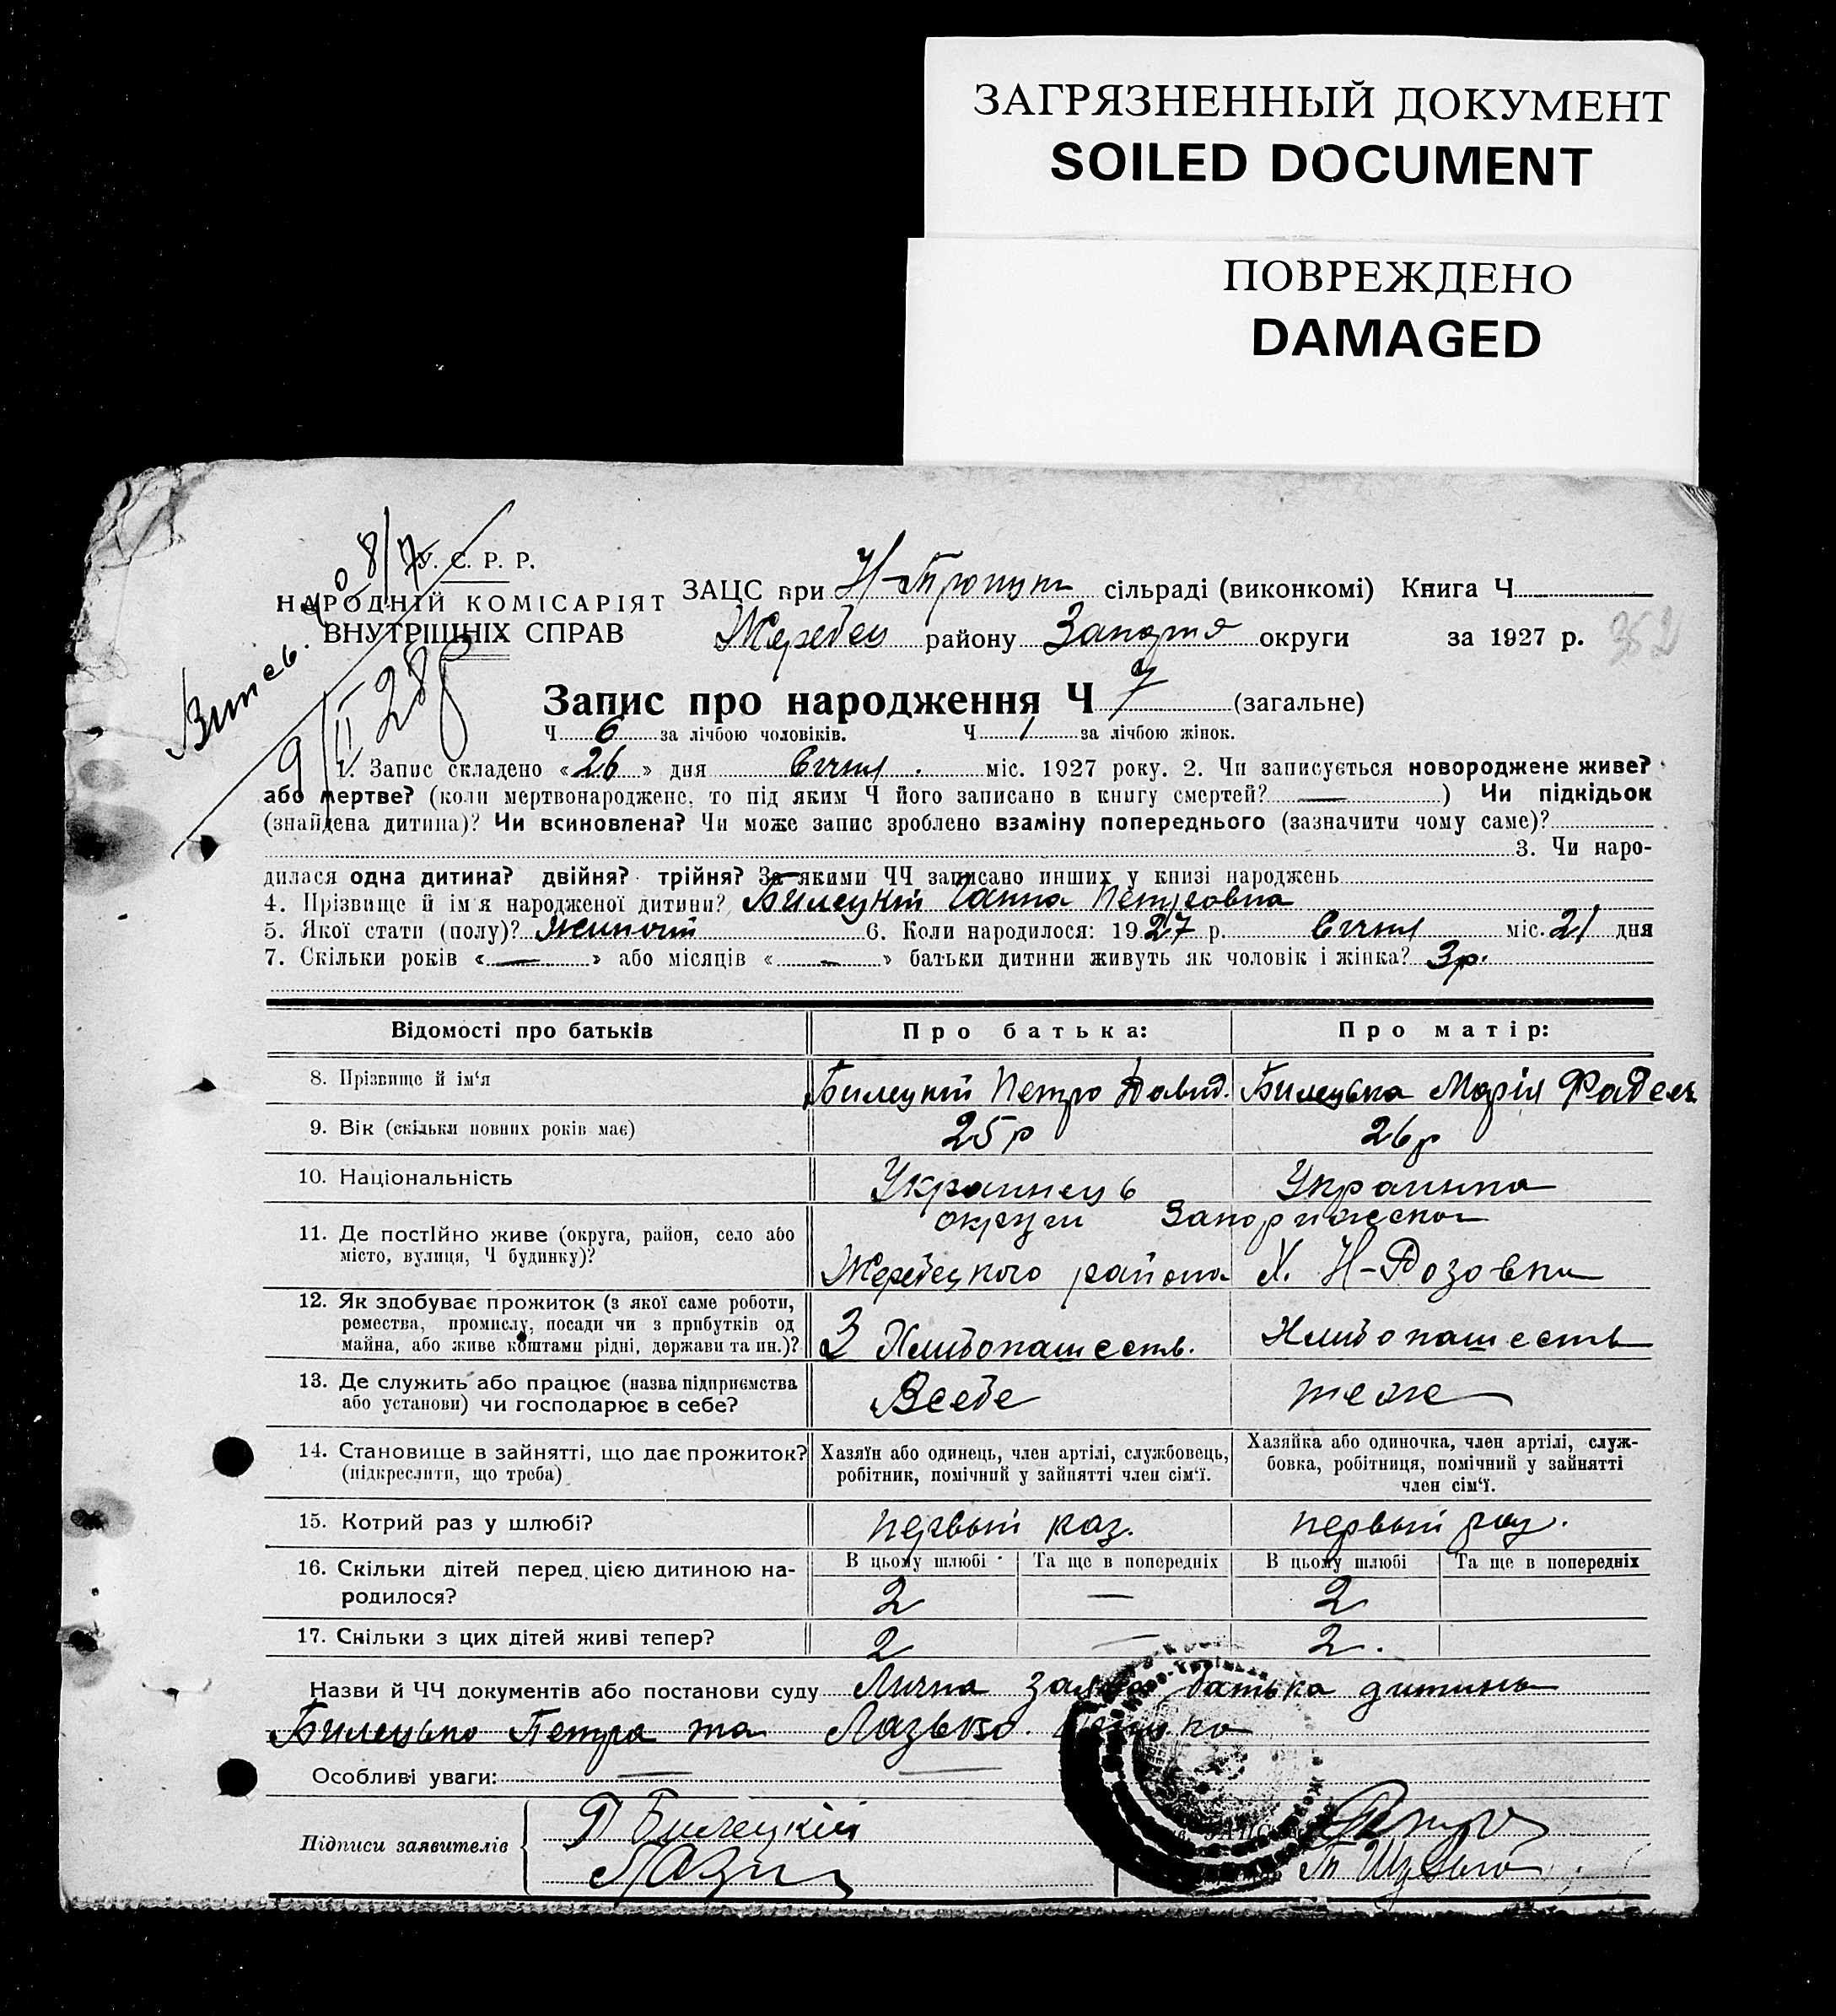 ЗАГРЯЗНЕННЫЙ ДОКУМЕНТ
SOILED DOCUMENT
ПОВРЕЖДЕНО
DAMAGED
У. С. Р. Р.
НАРОДНІЙ КОМІСАРІЯТ
ВНУТРІШНІХ СПРАВ
ЗАЦС при Н- сільраді (виконкомі) Книга Ч
Жеребец району округи за 1927 р. 352
Запис про народження Ч 7 (загальне)
Ч 6 за лічбою чоловіків. Ч 1 за лічбою жінок.
1. Запис складено «26» дня Січня міс. 1927 року. 2. Чи записується новороджене живе?
або мертве? (коли мертвонароджене, то під яким Ч його записано в книгу смертей? —) Чи підкідьок
(знайдена дитина)? Чи всиновлена? Чи може запис зроблено взаміну попереднього (зазначити чому саме)?
3. Чи наро-
дилася одна дитина? двійня? трійня? За якими ЧЧ записано инших у книзі народжень
4. Прізвище й ім'я народженої дитини? Билецкій Ганна Петровна
5. Якої стати (полу)? 6. Коли народилося: 1927 р. Січня міс. 21 дня
7. Скільки років «—» або місяців «—» батьки дитини живуть як чоловік і жінка? 3р.
Відомості про батьків Про батька: Про матір:
8. Прізвище й ім'я Билецкій Петро Давид. Билецька Марія
9. Вік (скільки повних років має) 25р 26р
10. Національність Украинець Украинка
округи Запорижской
11. Де постійно живе (округа, район, село або
місто, вулиця, Ч будинку)? Жеребецкого района Х. Н-Розовки
12. Як здобуває прожиток (з якої саме роботи,
ремества, промислу, посади чи з прибутків од
майна, або живе коштами рідні, держави та ин.)? З Хлибопашеств. Хлибопашеств
13. Де служить або працює (назва підприємства
або установи) чи господарює в себе? Всебе теж
14. Становище в зайнятті, що дає прожиток?
(підкреслити, що треба)
Хазяїн або одинець, член артілі, службовець,
робітник, помічний у зайнятті член сім'ї.
Хазяйка або одиночка, член артілі, служ-
бовка, робітниця, помічний у зайнятті
член сім'ї.
15. Котрий раз у шлюбі? первый раз. первый раз.
В цьому шлюбі Та ще в попередніх В цьому шлюбі Та ще в попередніх
16. Скільки дітей перед цією дитиною на-
родилося? 2 — 2
17. Скільки з цих дітей живі тепер? 2 — 2.
Назви й ЧЧ документів або постанови суду Лична заява батька дитини
Билецько Петра та
Особливі уваги: —
Підписи заявителів П Билецкій